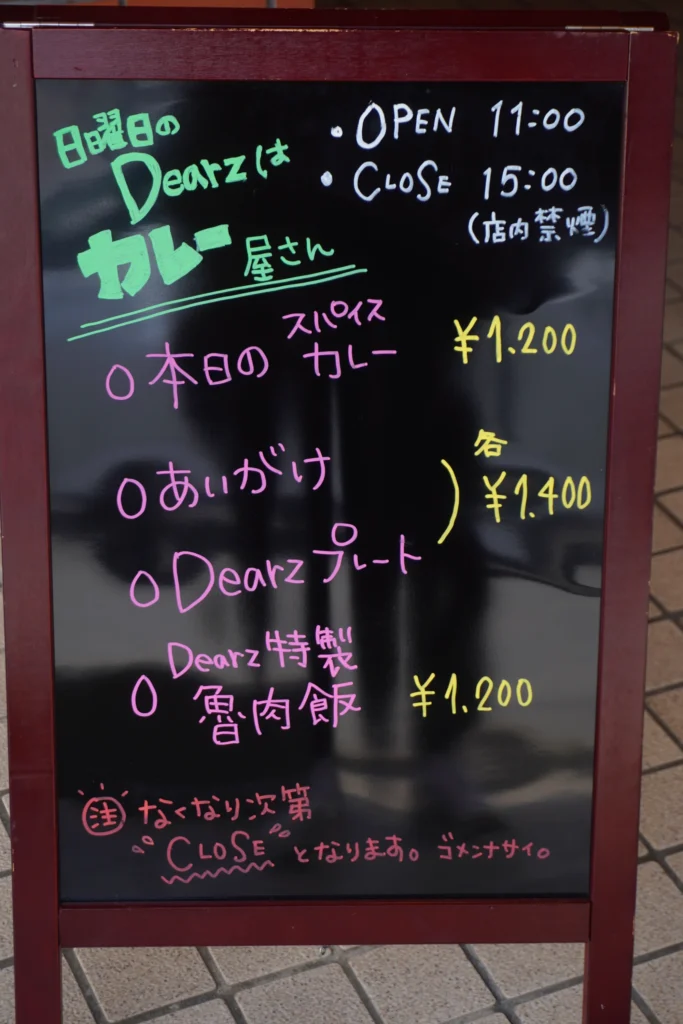 日曜日の
Dearzは
カレー屋さん
・OPEN 11:00
・CLOSE 15:00
(店内禁煙)
○本日のスパイスカレー ¥1.200
○あいがけ
○Dearzプレート
各
¥1.400
○Dearz特製
魯肉飯 ¥1.200
注 なくなり次第
CLOSE となります。ゴメンナサイ。